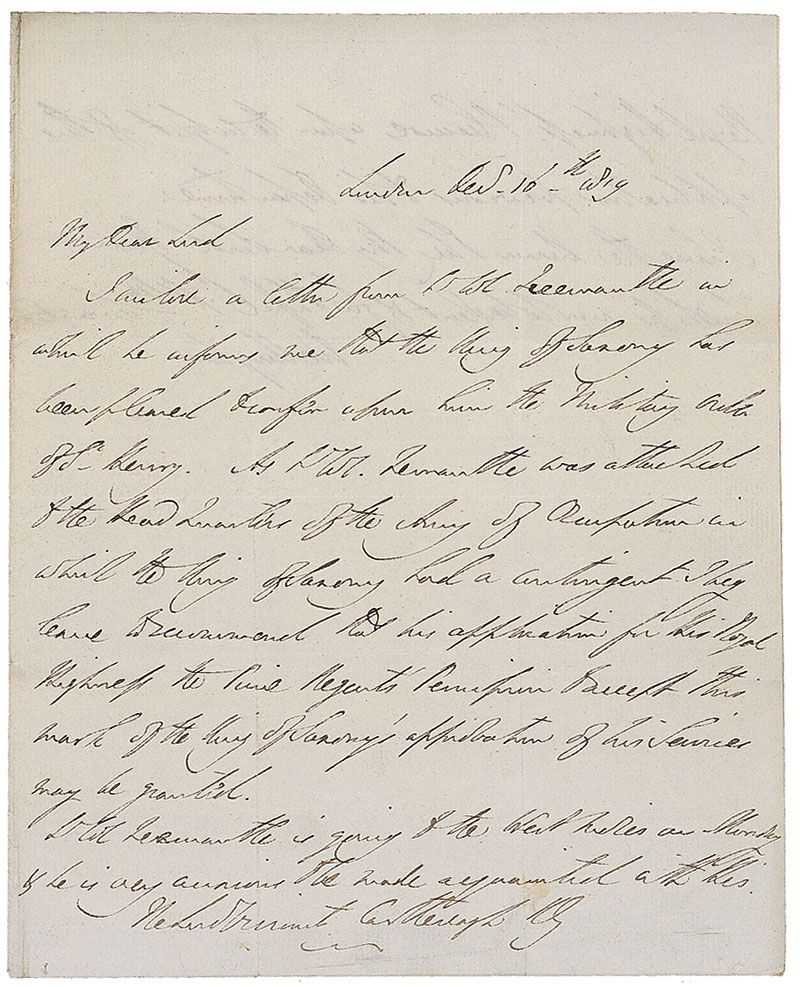 London Dec. 16th 1819
My Dear Lord
I enclose a letter from Lt Col Freemantle in
which he informs me that the King of Saxony has
been pleased to confer upon him the Military order
of St. Henry. As Lt Col. Fremantle was attached
to the Head Quarters of the Army of Occupation in
which the King of Saxony had a contingent I beg
leave to recommend that his application for His Royal
Highness the Prince Regents' Permission to accept this
mark of the King of Saxony's approbation of his Services
may be granted.
Lt Col Freemantle is going to the West Indies on Monday
& he is very anxious to be made acquainted with this.
The Lord Viscount Castlereagh KG